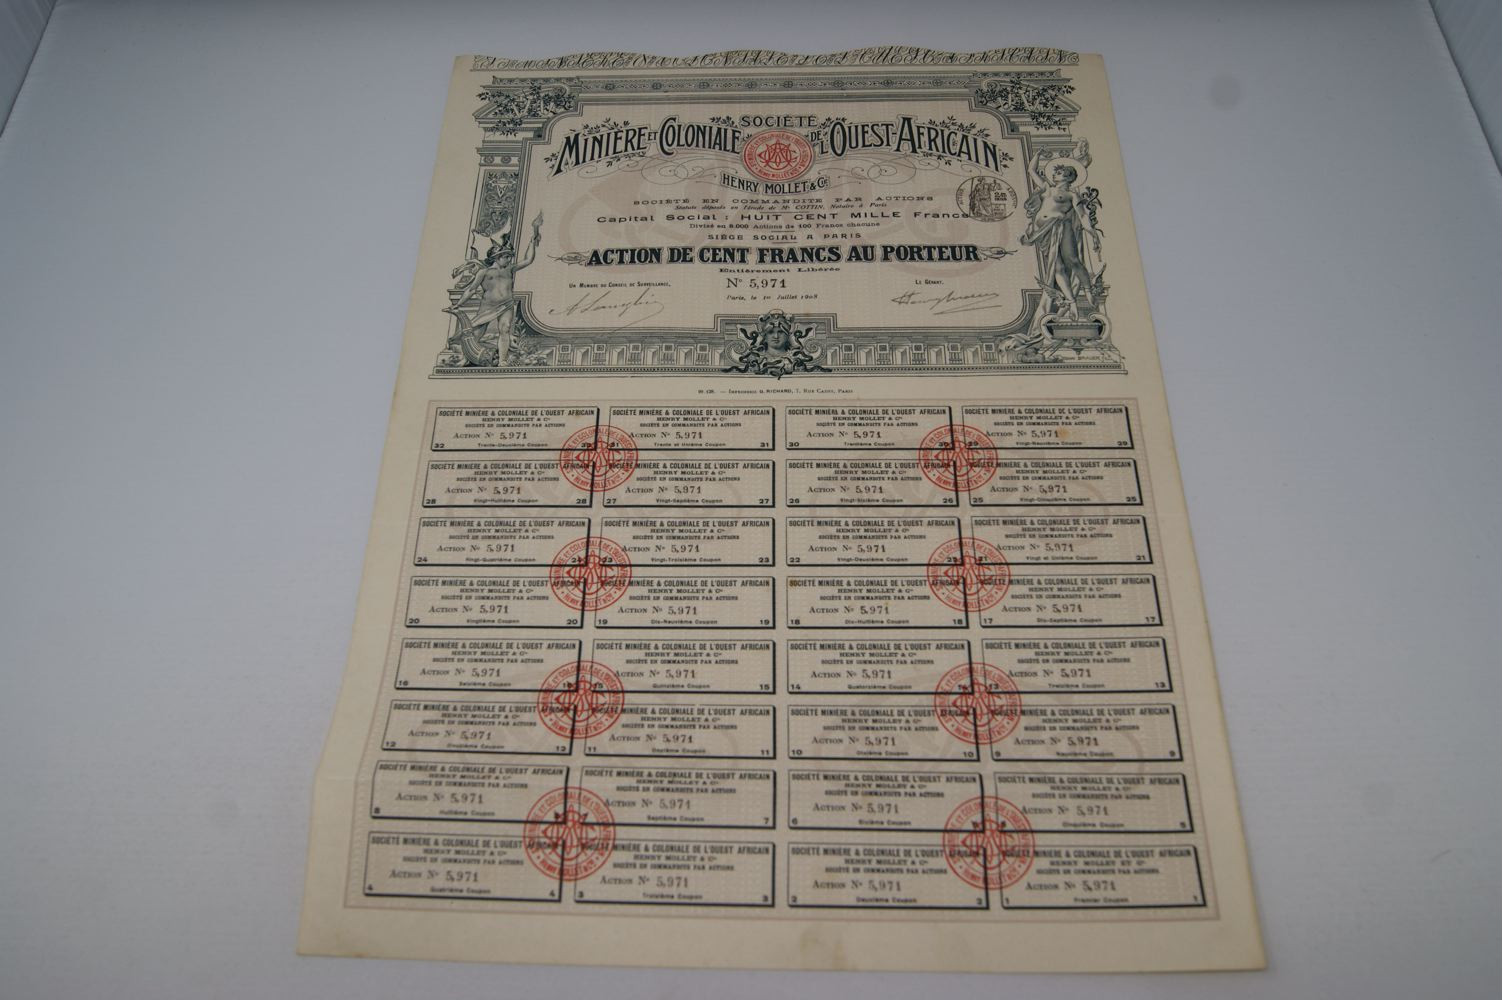 SOCIÉTÉ
MINIÈRE ET COLONIALE DE L'OUEST-AFRICAIN
HENRY MOLLET & Cie
SOCIÉTÉ EN COMMANDITE PAR ACTIONS
Statuts déposés en l'étude de Me COTTIN, Notaire à Paris
Capital Social : HUIT CENT MILLE Francs
Divisé en 8.000 Actions de 100 Francs chacune
SIÈGE SOCIAL A PARIS
ACTION DE CENT FRANCS AU PORTEUR
Entièrement Libérée
UN MEMBRE DU CONSEIL DE SURVEILLANCE,
N° 5,971
LE GÉRANT,
Paris, le 1er Juillet 1908
IMPRIMERIE G. RICHARD, 7, RUE CADET, PARIS
SOCIÉTÉ MINIÈRE & COLONIALE DE L'OUEST AFRICAIN
HENRY MOLLET & Cie
SOCIÉTÉ EN COMMANDITE PAR ACTIONS
ACTION N° 5,971
32 Trente-Deuxième Coupon
SOCIÉTÉ MINIÈRE & COLONIALE DE L'OUEST AFRICAIN
HENRY MOLLET & Cie
SOCIÉTÉ EN COMMANDITE PAR ACTIONS
ACTION N° 5,971
31 Trente et Unième Coupon 31
SOCIÉTÉ MINIÈRE & COLONIALE DE L'OUEST AFRICAIN
HENRY MOLLET & Cie
SOCIÉTÉ EN COMMANDITE PAR ACTIONS
ACTION N° 5,971
30 Trentième Coupon 30
SOCIÉTÉ MINIÈRE & COLONIALE DE L'OUEST AFRICAIN
HENRY MOLLET & Cie
SOCIÉTÉ EN COMMANDITE PAR ACTIONS
ACTION N° 5,971
29 Vingt-Neuvième Coupon 29
SOCIÉTÉ MINIÈRE & COLONIALE DE L'OUEST AFRICAIN
HENRY MOLLET & Cie
SOCIÉTÉ EN COMMANDITE PAR ACTIONS
ACTION N° 5,971
28 Vingt-Huitième Coupon 28
SOCIÉTÉ MINIÈRE & COLONIALE DE L'OUEST AFRICAIN
HENRY MOLLET & Cie
SOCIÉTÉ EN COMMANDITE PAR ACTIONS
ACTION N° 5,971
27 Vingt-Septième Coupon 27
SOCIÉTÉ MINIÈRE & COLONIALE DE L'OUEST AFRICAIN
HENRY MOLLET & Cie
SOCIÉTÉ EN COMMANDITE PAR ACTIONS
ACTION N° 5,971
26 Vingt-Sixième Coupon 26
SOCIÉTÉ MINIÈRE & COLONIALE DE L'OUEST AFRICAIN
HENRY MOLLET & Cie
SOCIÉTÉ EN COMMANDITE PAR ACTIONS
ACTION N° 5,971
25 Vingt-Cinquième Coupon 25
SOCIÉTÉ MINIÈRE & COLONIALE DE L'OUEST AFRICAIN
HENRY MOLLET & Cie
SOCIÉTÉ EN COMMANDITE PAR ACTIONS
ACTION N° 5,971
24 Vingt-Quatrième Coupon 24
SOCIÉTÉ MINIÈRE & COLONIALE DE L'OUEST AFRICAIN
HENRY MOLLET & Cie
SOCIÉTÉ EN COMMANDITE PAR ACTIONS
ACTION N° 5,971
23 Vingt-Troisième Coupon 23
SOCIÉTÉ MINIÈRE & COLONIALE DE L'OUEST AFRICAIN
HENRY MOLLET & Cie
SOCIÉTÉ EN COMMANDITE PAR ACTIONS
ACTION N° 5,971
22 Vingt-Deuxième Coupon 22
SOCIÉTÉ MINIÈRE & COLONIALE DE L'OUEST AFRICAIN
HENRY MOLLET & Cie
SOCIÉTÉ EN COMMANDITE PAR ACTIONS
ACTION N° 5,971
21 Vingt et Unième Coupon 21
SOCIÉTÉ MINIÈRE & COLONIALE DE L'OUEST AFRICAIN
HENRY MOLLET & Cie
SOCIÉTÉ EN COMMANDITE PAR ACTIONS
ACTION N° 5,971
20 Vingtième Coupon 20
SOCIÉTÉ MINIÈRE & COLONIALE DE L'OUEST AFRICAIN
HENRY MOLLET & Cie
SOCIÉTÉ EN COMMANDITE PAR ACTIONS
ACTION N° 5,971
19 Dix-Neuvième Coupon 19
SOCIÉTÉ MINIÈRE & COLONIALE DE L'OUEST AFRICAIN
HENRY MOLLET & Cie
SOCIÉTÉ EN COMMANDITE PAR ACTIONS
ACTION N° 5,971
18 Dix-Huitième Coupon 18
SOCIÉTÉ MINIÈRE & COLONIALE DE L'OUEST AFRICAIN
HENRY MOLLET & Cie
SOCIÉTÉ EN COMMANDITE PAR ACTIONS
ACTION N° 5,971
17 Dix-Septième Coupon 17
SOCIÉTÉ MINIÈRE & COLONIALE DE L'OUEST AFRICAIN
HENRY MOLLET & Cie
SOCIÉTÉ EN COMMANDITE PAR ACTIONS
ACTION N° 5,971
16 Seizième Coupon 16
SOCIÉTÉ MINIÈRE & COLONIALE DE L'OUEST AFRICAIN
HENRY MOLLET & Cie
SOCIÉTÉ EN COMMANDITE PAR ACTIONS
ACTION N° 5,971
15 Quinzième Coupon 15
SOCIÉTÉ MINIÈRE & COLONIALE DE L'OUEST AFRICAIN
HENRY MOLLET & Cie
SOCIÉTÉ EN COMMANDITE PAR ACTIONS
ACTION N° 5,971
14 Quatorzième Coupon 14
SOCIÉTÉ MINIÈRE & COLONIALE DE L'OUEST AFRICAIN
HENRY MOLLET & Cie
SOCIÉTÉ EN COMMANDITE PAR ACTIONS
ACTION N° 5,971
13 Treizième Coupon 13
SOCIÉTÉ MINIÈRE & COLONIALE DE L'OUEST AFRICAIN
HENRY MOLLET & Cie
SOCIÉTÉ EN COMMANDITE PAR ACTIONS
ACTION N° 5,971
12 Douzième Coupon 12
SOCIÉTÉ MINIÈRE & COLONIALE DE L'OUEST AFRICAIN
HENRY MOLLET & Cie
SOCIÉTÉ EN COMMANDITE PAR ACTIONS
ACTION N° 5,971
11 Onzième Coupon 11
SOCIÉTÉ MINIÈRE & COLONIALE DE L'OUEST AFRICAIN
HENRY MOLLET & Cie
SOCIÉTÉ EN COMMANDITE PAR ACTIONS
ACTION N° 5,971
10 Dixième Coupon 10
SOCIÉTÉ MINIÈRE & COLONIALE DE L'OUEST AFRICAIN
HENRY MOLLET & Cie
SOCIÉTÉ EN COMMANDITE PAR ACTIONS
ACTION N° 5,971
9 Neuvième Coupon 9
SOCIÉTÉ MINIÈRE & COLONIALE DE L'OUEST AFRICAIN
HENRY MOLLET & Cie
SOCIÉTÉ EN COMMANDITE PAR ACTIONS
ACTION N° 5,971
8 Huitième Coupon
SOCIÉTÉ MINIÈRE & COLONIALE DE L'OUEST AFRICAIN
HENRY MOLLET & Cie
SOCIÉTÉ EN COMMANDITE PAR ACTIONS
ACTION N° 5,971
Septième Coupon 7
SOCIÉTÉ MINIÈRE & COLONIALE DE L'OUEST AFRICAIN
HENRY MOLLET & Cie
SOCIÉTÉ EN COMMANDITE PAR ACTIONS
ACTION N° 5,971
6 Sixième Coupon
SOCIÉTÉ MINIÈRE & COLONIALE DE L'OUEST AFRICAIN
HENRY MOLLET & Cie
SOCIÉTÉ EN COMMANDITE PAR ACTIONS
ACTION N° 5,971
Cinquième Coupon 5
SOCIÉTÉ MINIÈRE & COLONIALE DE L'OUEST AFRICAIN
HENRY MOLLET & Cie
SOCIÉTÉ EN COMMANDITE PAR ACTIONS
ACTION N° 5,971
4 Quatrième Coupon 4
SOCIÉTÉ MINIÈRE & COLONIALE DE L'OUEST AFRICAIN
HENRY MOLLET & Cie
SOCIÉTÉ EN COMMANDITE PAR ACTIONS
ACTION N° 5,971
3 Troisième Coupon 3
SOCIÉTÉ MINIÈRE & COLONIALE DE L'OUEST AFRICAIN
HENRY MOLLET & Cie
SOCIÉTÉ EN COMMANDITE PAR ACTIONS
ACTION N° 5,971
2 Deuxième Coupon 2
SOCIÉTÉ MINIÈRE & COLONIALE DE L'OUEST AFRICAIN
HENRY MOLLET ET Cie
SOCIÉTÉ EN COMMANDITE PAR ACTIONS
ACTION N° 5,971
1 Premier Coupon 1